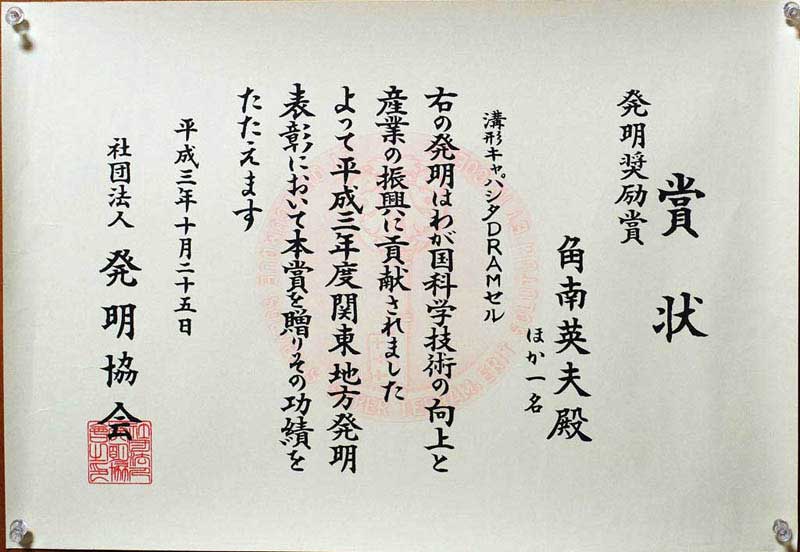 賞状
発明奨励賞
角南英夫殿
ほか一名
溝形キャパシタDRAMセル
右の発明はわが国科学技術の向上と
産業の振興に貢献されました
よって平成三年度関東地方発明
表彰において本賞を贈りその功績を
たたえます
平成三年十月二十五日
社団法人 発明協会